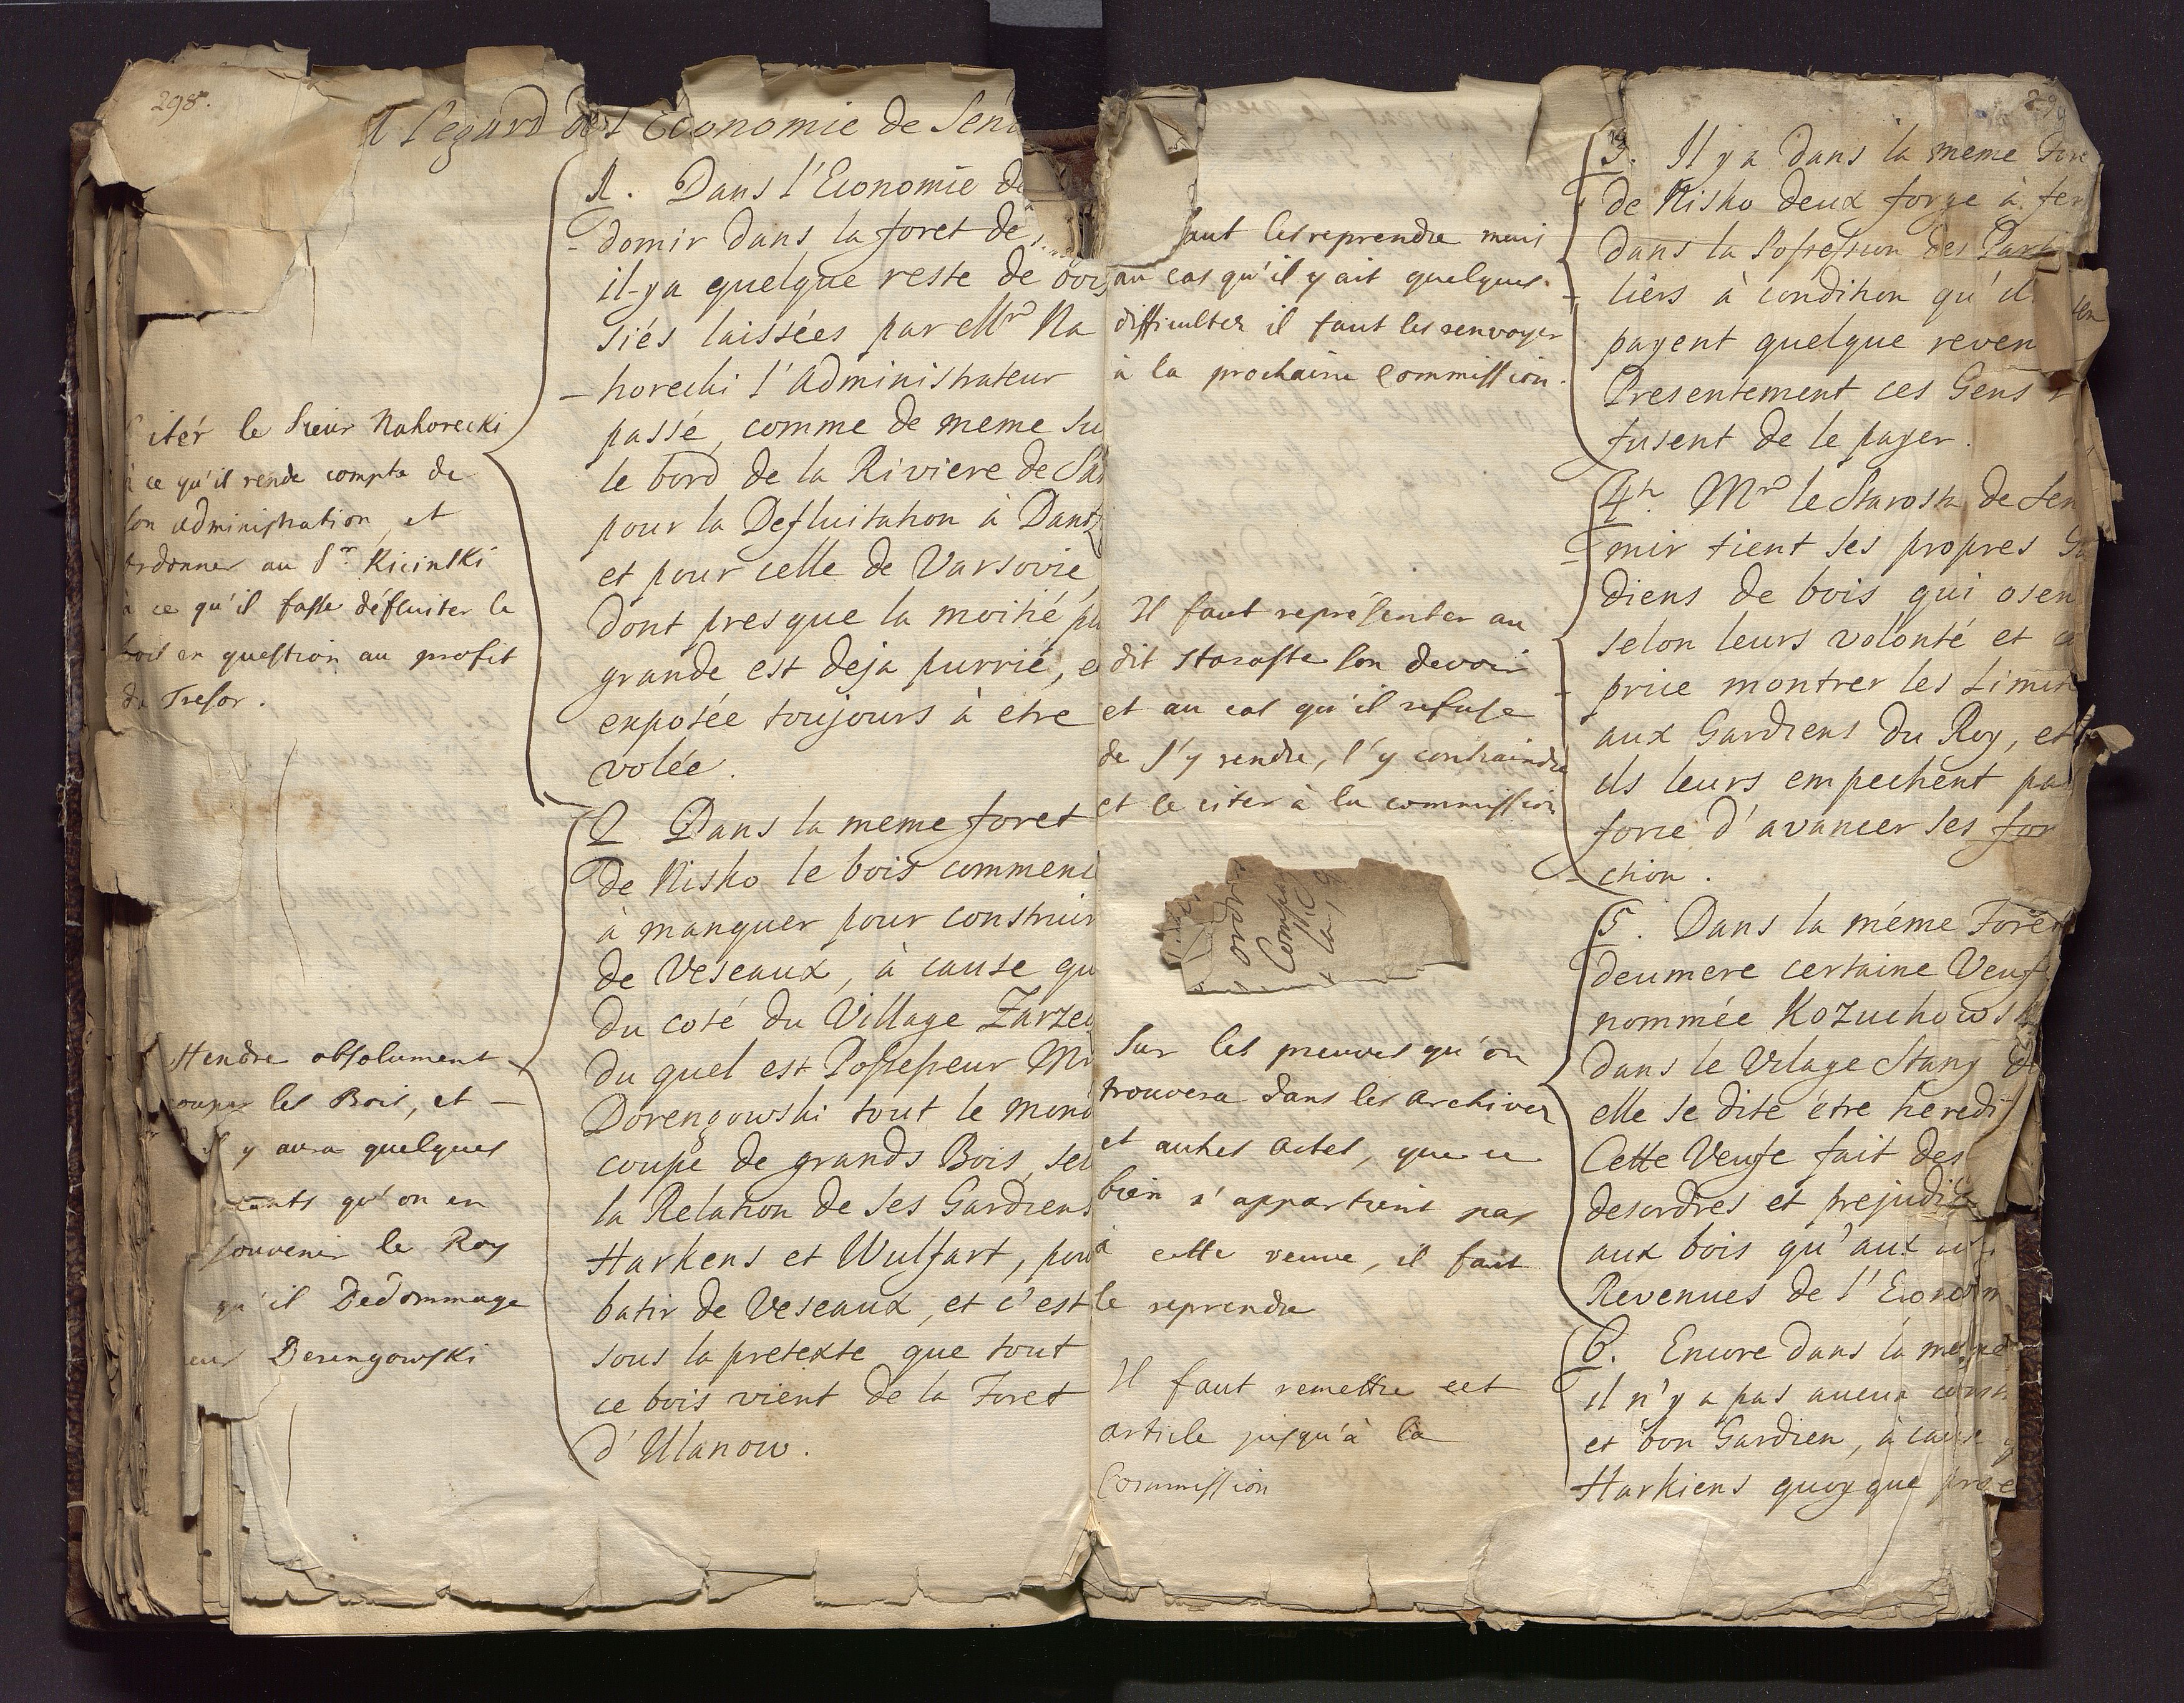 298.
l'egard de l'Economie de Sen
1. Dans l'Economie de
domir dans la foret de
il-ya quelque reste de bois
siés laissées par Mr Na
horecki l'Administrateur
passé, comme de meme su
le bord de la Riviere de Sa
pour la Defluitation à Dant
et pour celle de Varsovie
dont presque la moitié pu
grande est deja purrié, e
exposée toujours à etre
volée.
2 Dans la meme foret
de Nisko le bois commenc
à manquer pour construir
de Veseaux, à cause qu
du coté du Village Zarzec
du quel est Possesseur Mr
Dorengowski tout le mond
coupe de grands Bois, sel
la Relation de ses Gardiens
Harkens et Wulfart, pour
batir de Veseaux, et c'est
sous la pretexte que tout
ce bois vient de la Foret
d'Ulanow.
iter le Sieur Nahorecki
à ce qu'il rende compte de
son administration, et
ordonner au Sr. Kicinski
à ce qu'il fasse défluiter le
bois en question au profit
du Tresor.
ffendre absolument
couper les Bois, et
s'il y aura quelques
cents qu'on en
souvenir le Roy
qu'il Dedommage
eur Derengowski
299
3. Il y a dans la meme Fore
de Nisko deux forge à fer
dans la Possession des Parti
liers à condition qu'il
payent quelque reven
Presentement ces Gens r
fusent de le payer.
4. Mr le Starosta de Sen
mir tient ses propres Ga
diens de bois qui osen
selon leurs volonté et ca
price montrer les Limit
aux Gardiens du Roy, et
ils leurs empechent pa
force d'avancer ses fon
ction.
5. Dans la méme Foret
deumere certaine Veuf
nommée Kozuchowsk
dans le Vilage Stany d
elle se dite être heredi
Cette Veufe fait des
desordres et prejudi
aux bois qu'aux
Revenues de l'Econom
6. Encore dans la meme
il n'y a pas aucun
et bon Gardien, à cause q
Harkiens quoy que
faut les reprendre mais
au cas qu'il y ait quelques
difficultez il faut les renvoyer
à la prochaine Commission.
Il faut représenter au
dit Staroste son devoir
et au cas qu'il refuse
de s'y rendre, l'y contraindre
et le citer à la commission
ordre
Comp
la
Sur les preuves qu'on
trouvera dans les Archives
et autres Actes, que ce
bien n'appartient pas
à cette veuve, il faut
le reprendre
Il faut remettre cet
article jusqu'à la
Commission